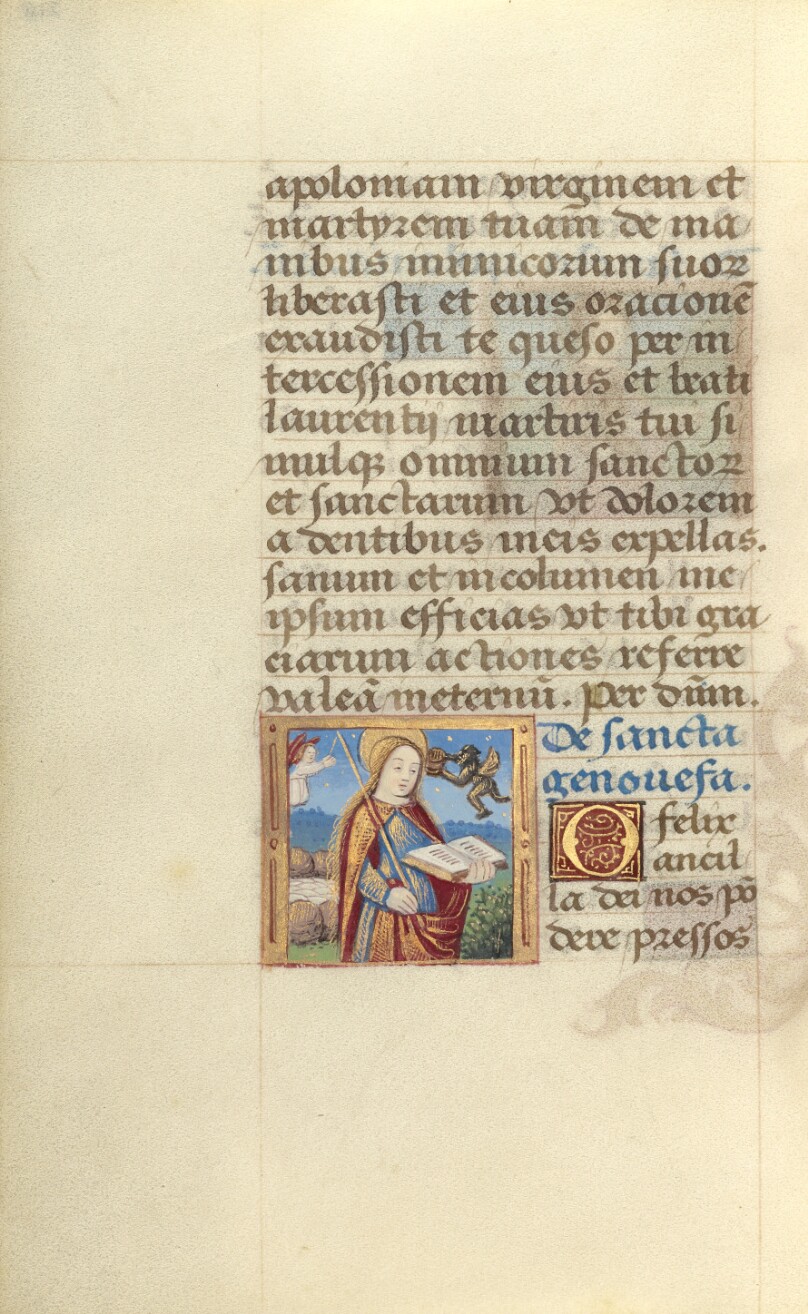 apoloniam virginem et
martyrem tuam̄ de ma
nibus inimicorum suoꝝ
liberasti et eius oracionē
exaudisti te queso per in
tercessionem eius et beati
laurentij martiris tui si
mulqꝫ omnium sanctoꝝ
et sanctarum vt dolorem
a dentibus meis expellas.
sanum et incolumen me
ipsum efficias vt tibi gra
ciarum actiones referre
valeā in eternū. Per dn̄m.
De sancta
genouefa.
O felix
ancil
la dei nos pō
dere pressos